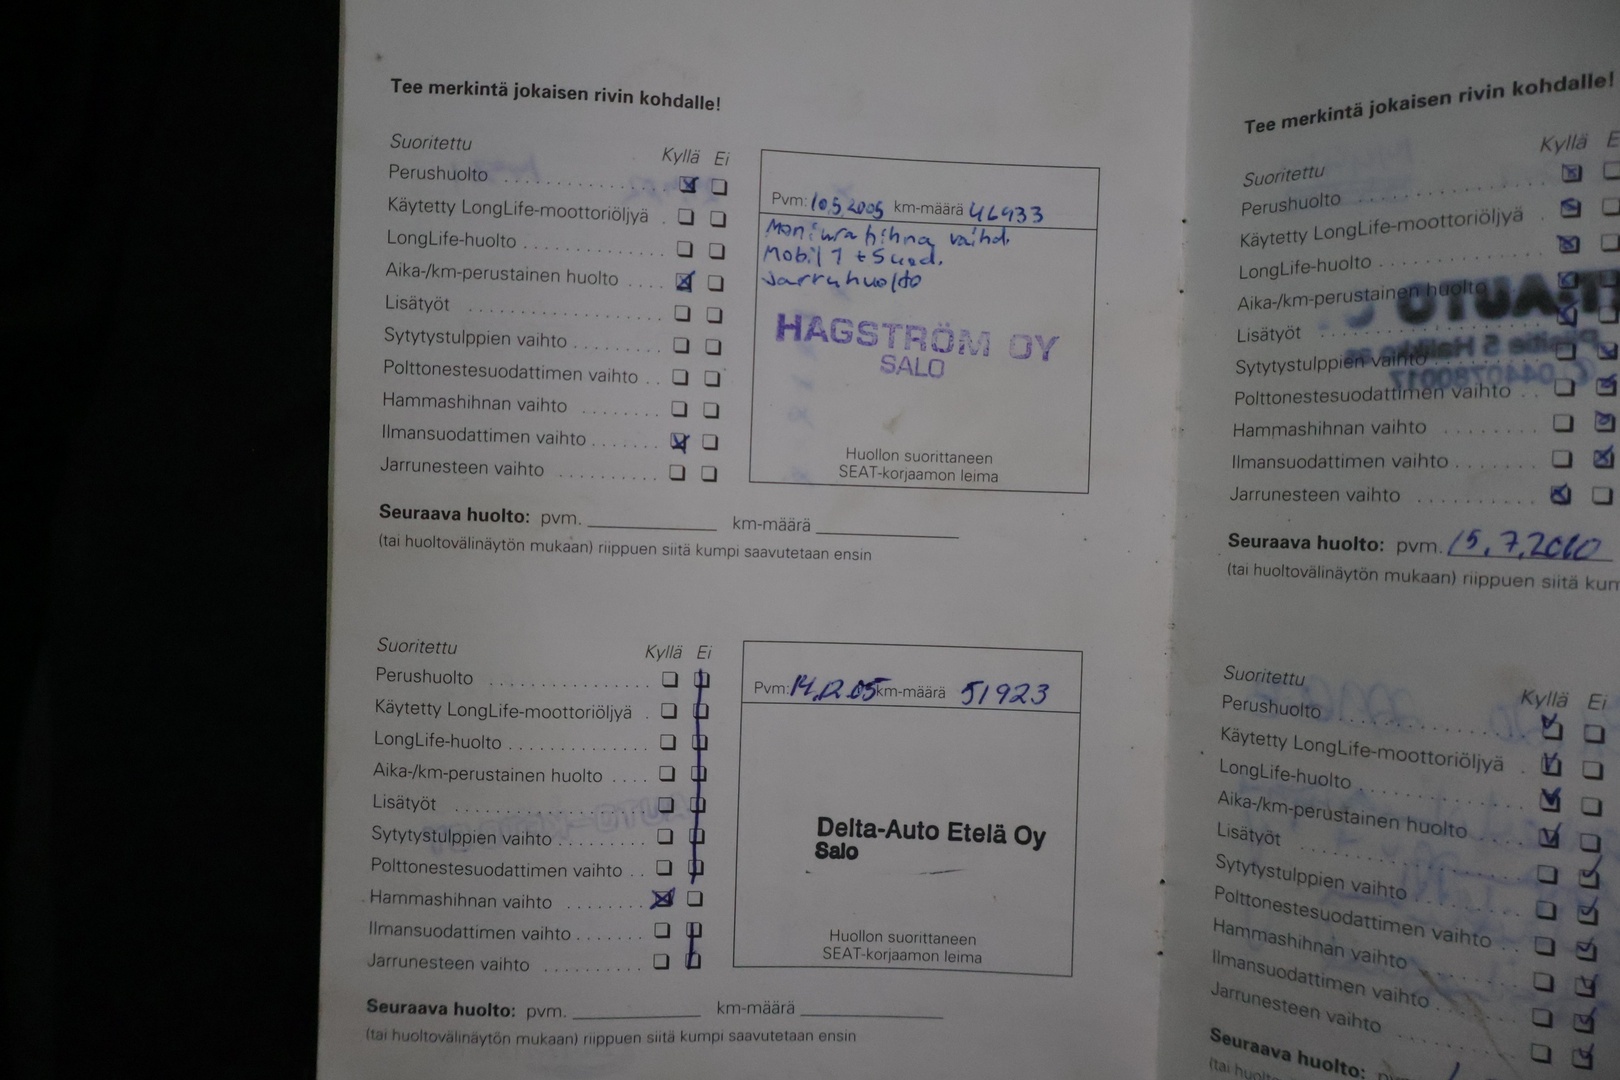 Tee merkintä jokaisen rivin kohdalle!
Suoritettu
Kyllä Ei
Perushuolto
Käytetty LongLife-moottoriöljyä
LongLife-huolto
Aika-/km-perustainen huolto
Lisätyöt
Sytytystulppien vaihto
Polttonestesuodattimen vaihto
Hammashihnan vaihto
Ilmansuodattimen vaihto
Jarrunesteen vaihto
Pvm: 10.5.2005 km-määrä 46933
Moniurahihna vaihd.
Mobil 1 + Suod.
Jarruhuolto
HAGSTRÖM OY
SALO
Huollon suorittaneen
SEAT-korjaamon leima
Seuraava huolto: pvm. km-määrä
(tai huoltovälinäytön mukaan) riippuen siitä kumpi saavutetaan ensin
Suoritettu
Kyllä Ei
Perushuolto
Käytetty LongLife-moottoriöljyä
LongLife-huolto
Aika-/km-perustainen huolto
Lisätyöt
Sytytystulppien vaihto
Polttonestesuodattimen vaihto
Hammashihnan vaihto
Ilmansuodattimen vaihto
Jarrunesteen vaihto
Pvm: 14.12.05 km-määrä 51923
Delta-Auto Etelä Oy
Salo
Huollon suorittaneen
SEAT-korjaamon leima
Seuraava huolto: pvm. km-määrä
(tai huoltovälinäytön mukaan) riippuen siitä kumpi saavutetaan ensin
Tee merkintä jokaisen rivin kohdalle!
Suoritettu
Kyllä E
Perushuolto
Käytetty LongLife-moottoriöljyä
LongLife-huolto
Aika-/km-perustainen huolto
Lisätyöt
Sytytystulppien vaihto
Polttonestesuodattimen vaihto
Hammashihnan vaihto
Ilmansuodattimen vaihto
Jarrunesteen vaihto
Seuraava huolto: pvm. 15.7.2010
(tai huoltovälinäytön mukaan) riippuen siitä kum
Suoritettu
Kyllä Ei
Perushuolto
Käytetty LongLife-moottoriöljyä
LongLife-huolto
Aika-/km-perustainen huolto
Lisätyöt
Sytytystulppien vaihto
Polttonestesuodattimen vaihto
Hammashihnan vaihto
Ilmansuodattimen vaihto
Jarrunesteen vaihto
Seuraava huolto: